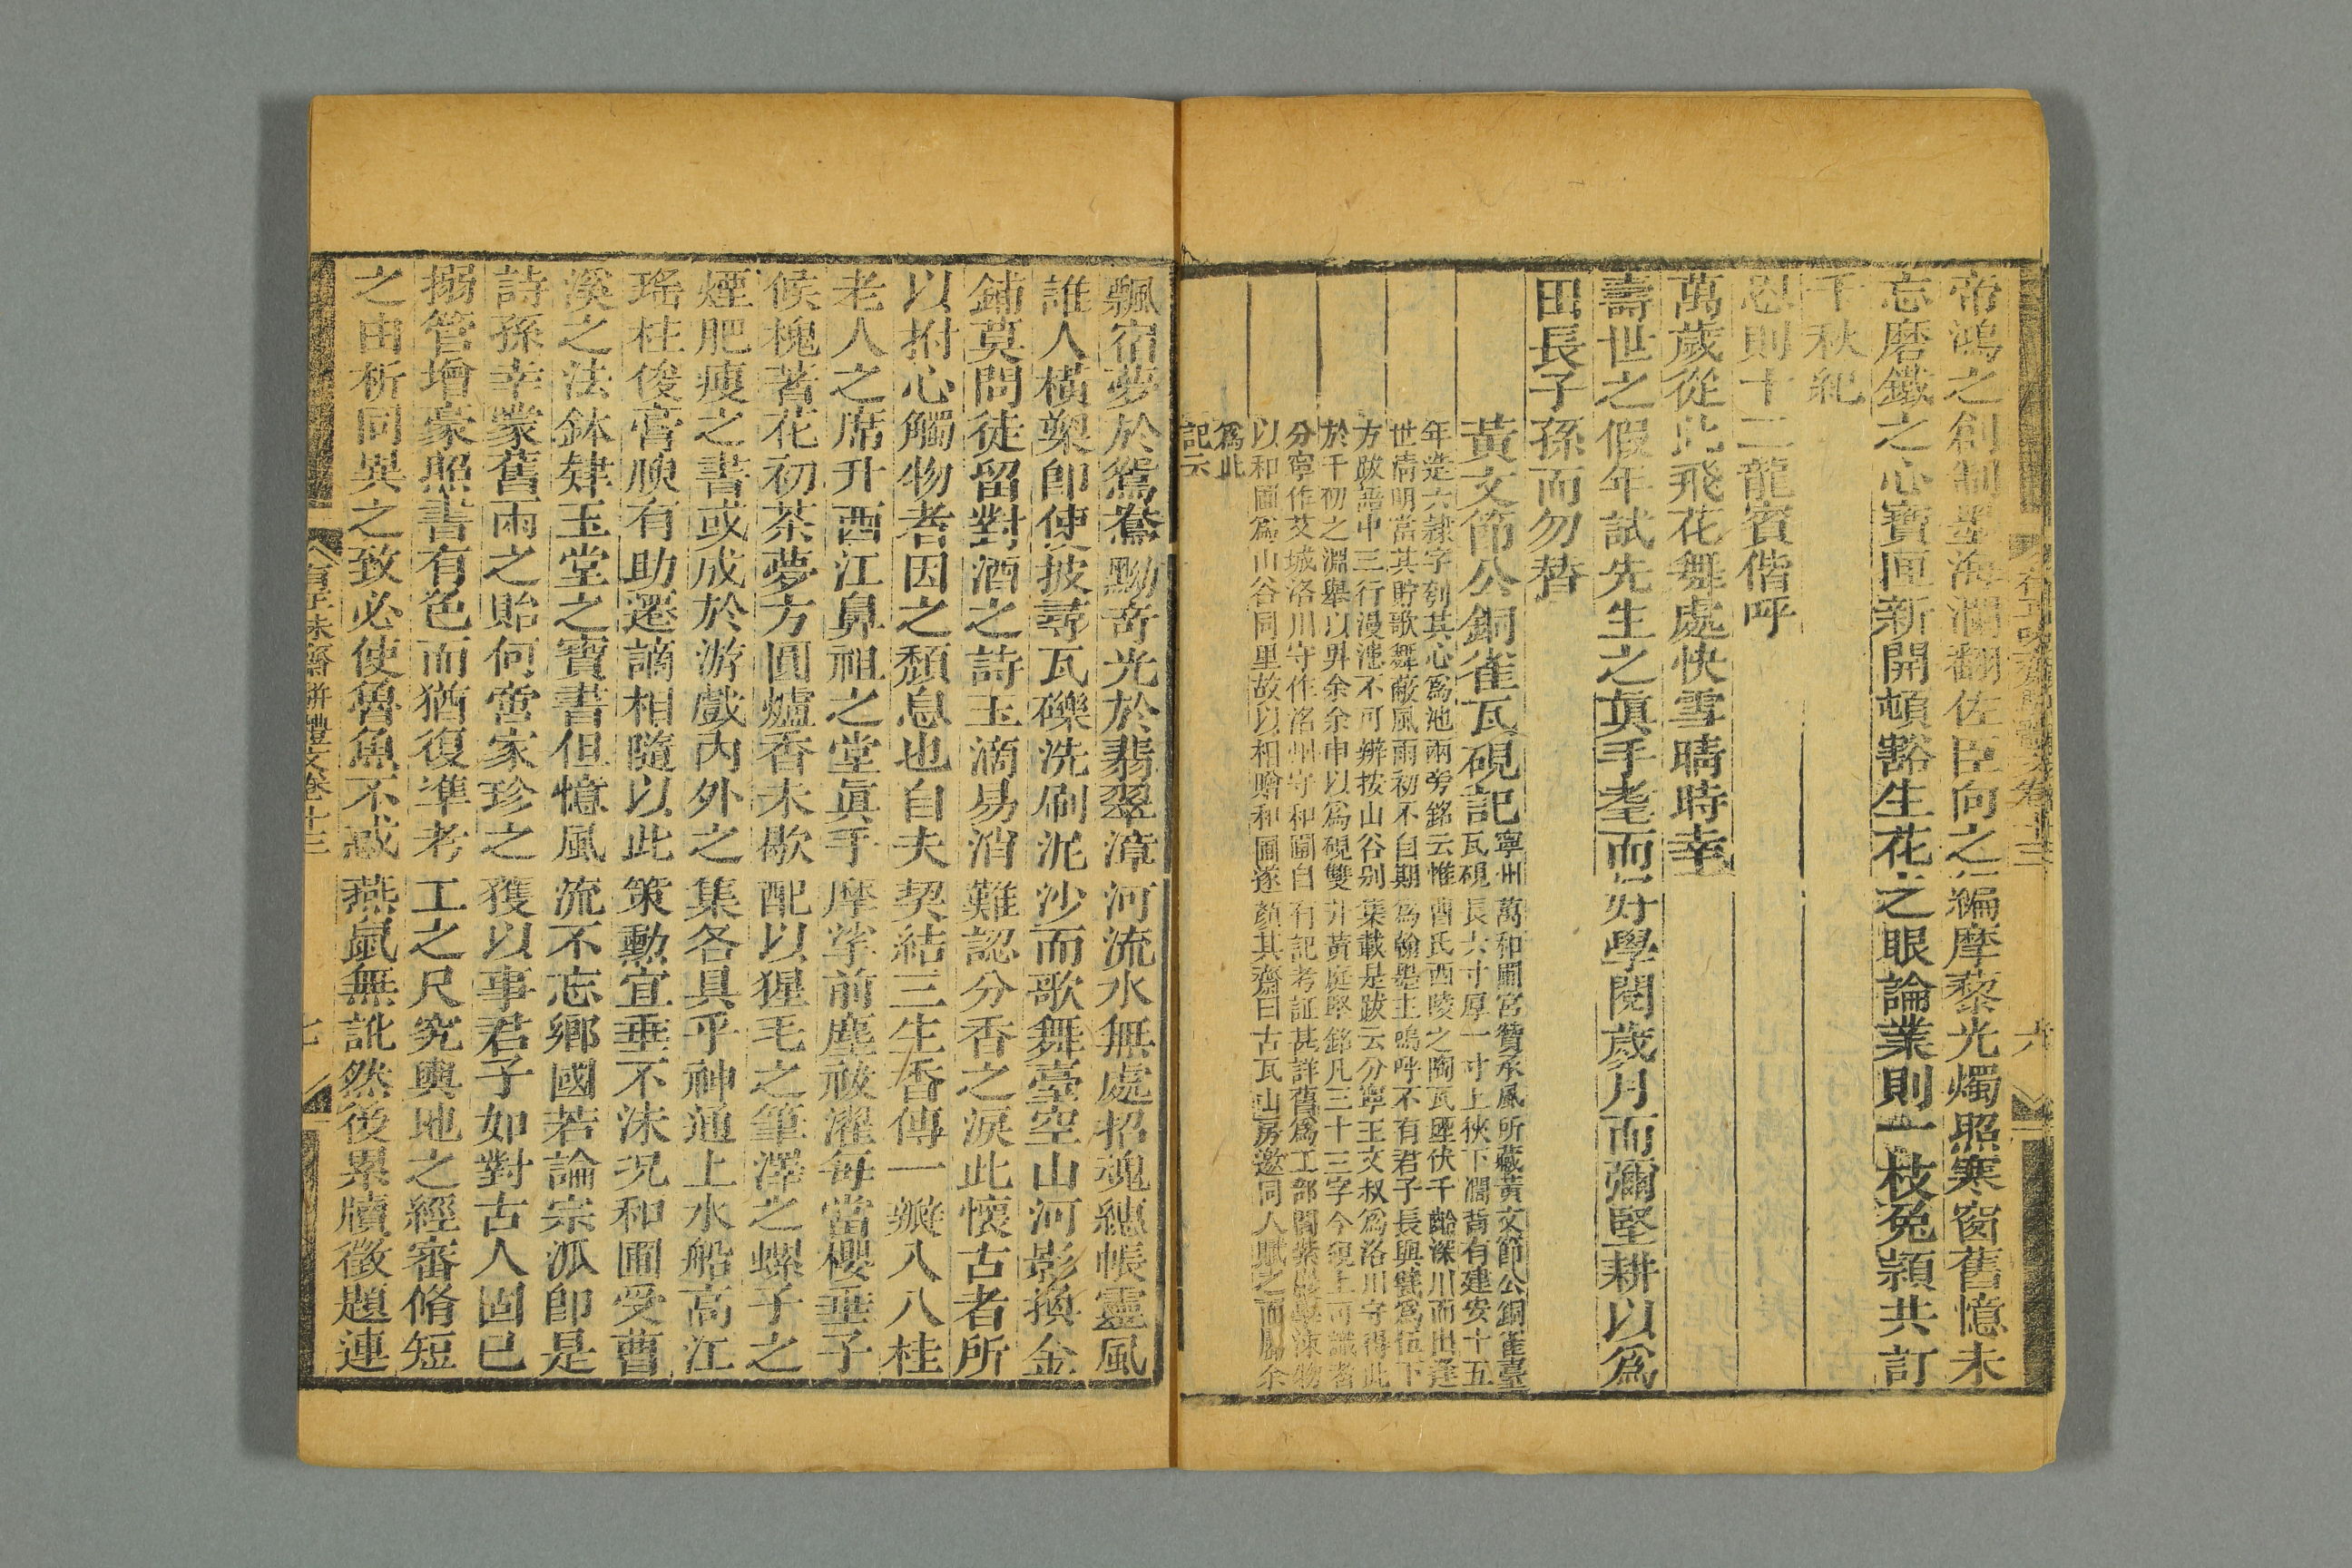 帝鴻之創制墨海瀾翻佐臣向之編摩藜光燭照寒窗舊憶未
忘磨鐵之心寶匣新開頓豁生花之眼論業則一枝兔穎共訂
千秋紀
恩則十二龍賓偕呼
萬歲從此飛花舞處快雪晴時幸
壽世之假年試先生之眞手耄而好學閱歲月而彌堅耕以爲
田長子孫而勿替
黃文節公銅雀瓦硯記
寧州萬和圃宮贊承風所藏黃文節公銅雀臺
瓦硯長六寸厚一寸上狹下濶背有建安十五
年造六隷字刳其心爲池兩旁銘云惟酉氏西陵之陶瓦堙伏千齡深川而出逢
世淸明當其貯歌舞蔽風雨初不自期爲翰墨主嗚呼不有君子長與甓爲伍下
方跋語中三行漫漶不可辨按山谷别集載是跋云分寧王文叔爲洛川守得此
於千仞之淵舉以畀余余申以爲硯雙井黃庭堅銘凡三十三字今硯上可識者
分寧作艾城洛川守作洺州守和圃自有記考証甚詳舊爲工部閣
以和圃爲山谷同里故以相贈和圃遂顏其齋曰古瓦山房邀同人賦之而屬余
爲此
記云
六
飄宿夢於鴛鴦黝奇光於翡翠漳河流水無處招魂繐帳靈風
誰人橫槊即使披尋瓦礫洗刷泥沙而歌舞臺空山河影換金
鋪莫問徒留對酒之詩玉滴易消難認分香之淚此懷古者所
以拊心觸物者因之頹息也自夫契結三生香傳一瓣入八桂
老人之席升酉江鼻祖之堂眞手摩挲前塵祓濯每當櫻垂子
候槐著花初茶夢方圓爐香未歇配以猩毛之筆澤之螺子之
煙肥瘦之書或成於游戲內外之集各具乎神通上水船高江
瑤柱俊膏腴有助遷謫相隨以此策勳宜垂不沬況和圃受曹
溪之法鉢肄玉堂之寶書但憶風流不忘鄉國若論宗派卽是
詩孫幸蒙舊雨之貽何啻家珍之獲以事君子如對古人固已
搦管增豪照書有色而猶復準考工之尺究輿地之經審脩短
之由析同異之致必使魯魚不惑燕鼠無訛然後累牘徵題連
有正味齋駢體文卷十三
七